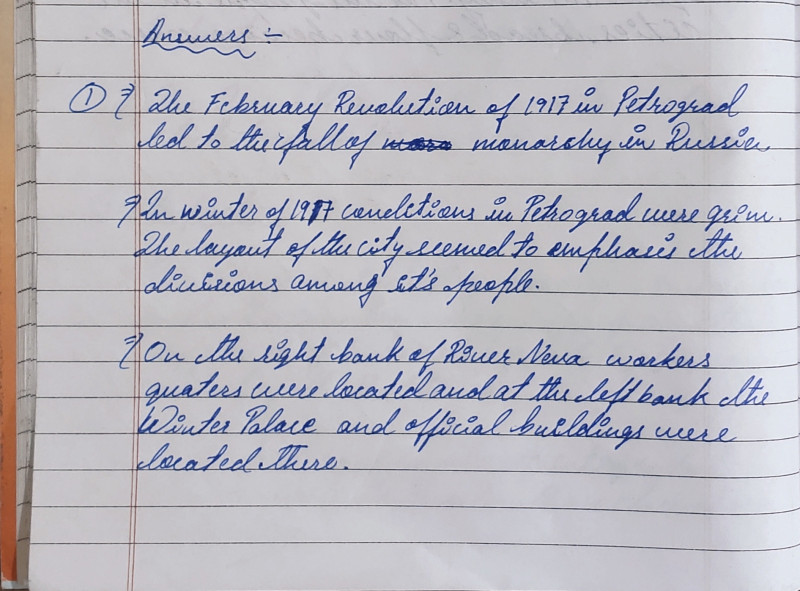 Answers :-
① → The February Revolution of 1917 in Petrograd
led to the fall of monarchy in Russia
→ In winter of 1917 conditions in Petrograd were grim.
The layout of the city seemed to emphasis the
divisions among it's people.
→ On the right bank of River Neva workers
quaters were located and at the left bank the
Winter Palace and official buildings were
located there.